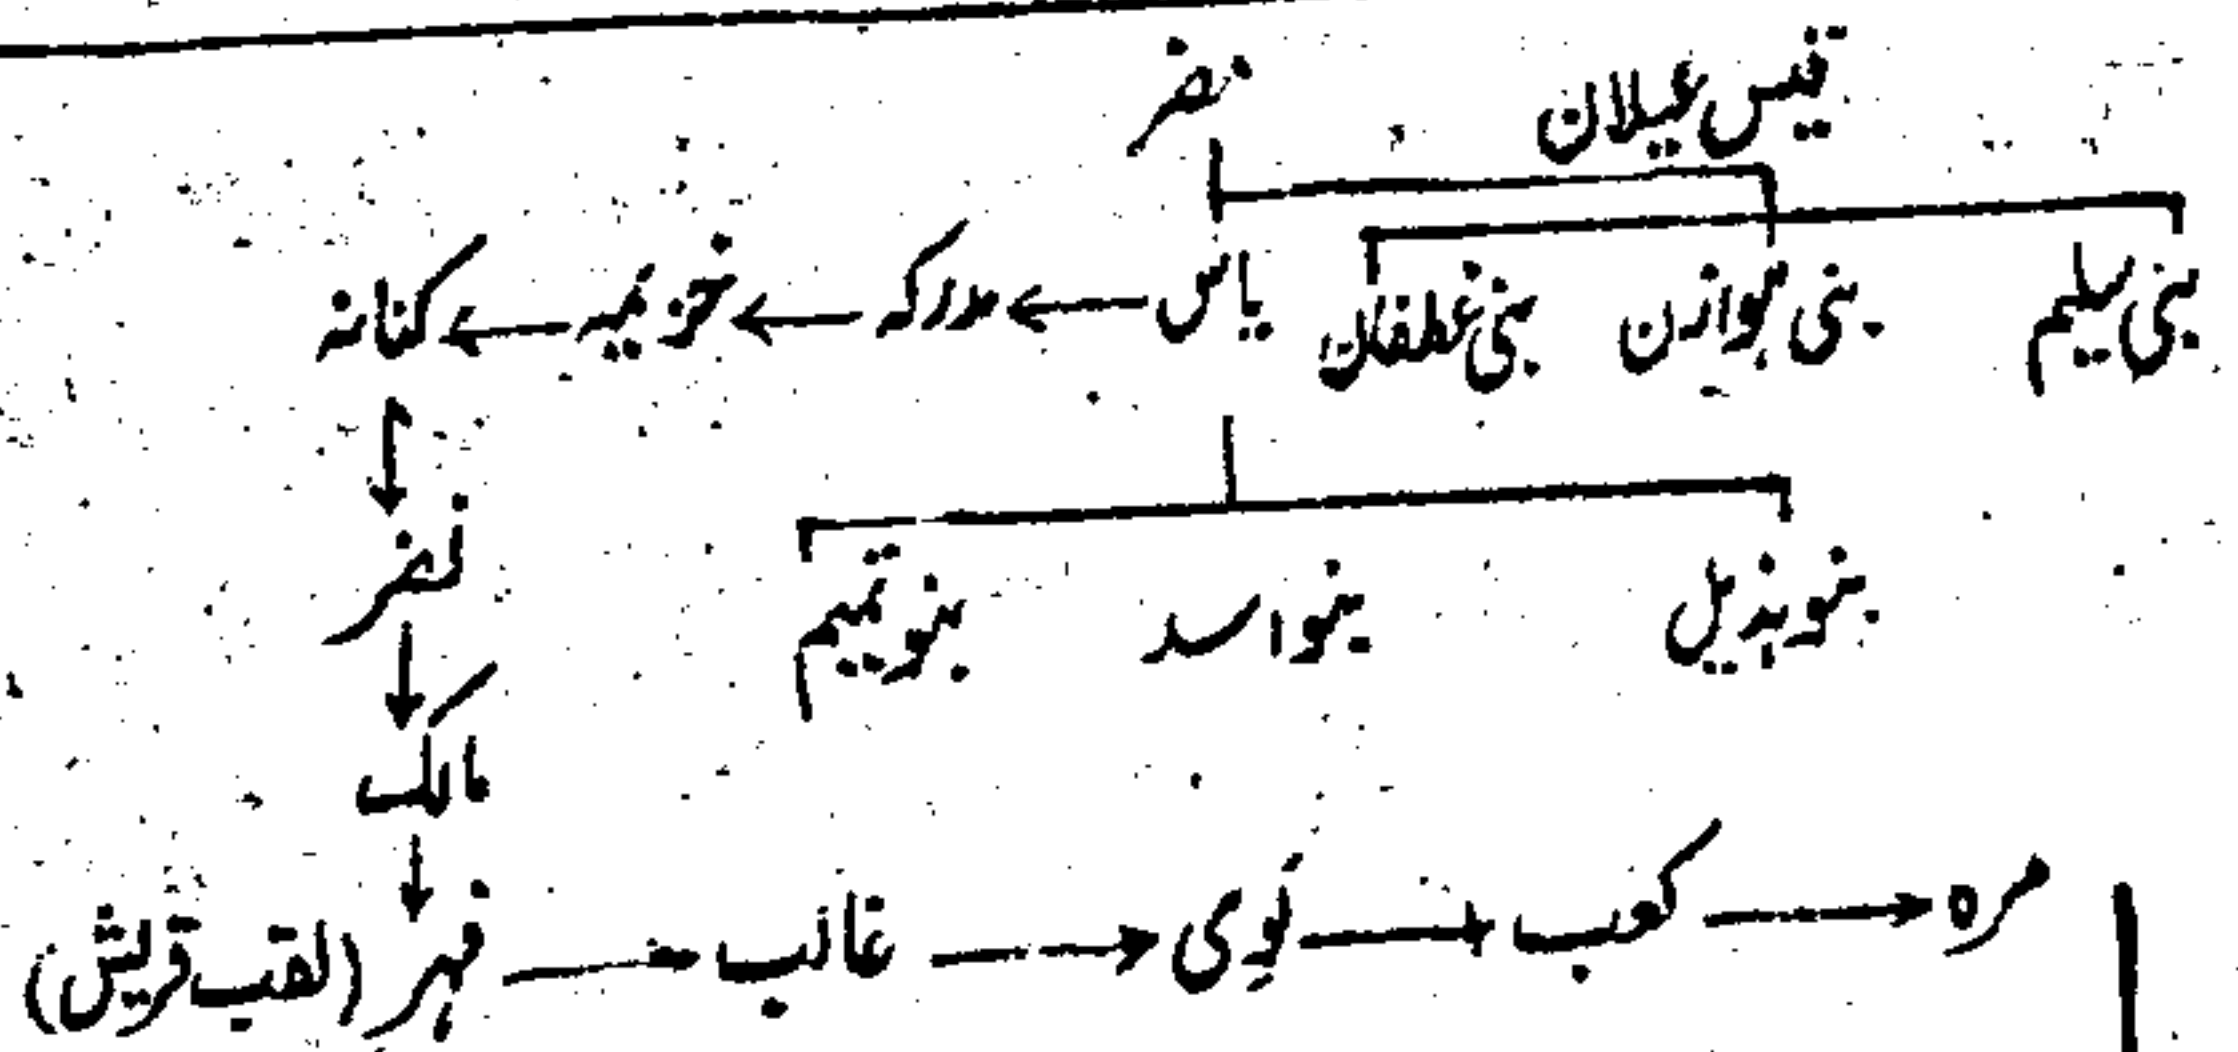 قیس عیلان مضر
بنی سلیم بنی ہوازن بنی غطفان یاس مدرکہ خزیمہ کنانہ
بنو ہذیل بنو اسد بنو تمیم نضر
مالک
مرہ کعب لوی غالب فہر (لقب قریش)